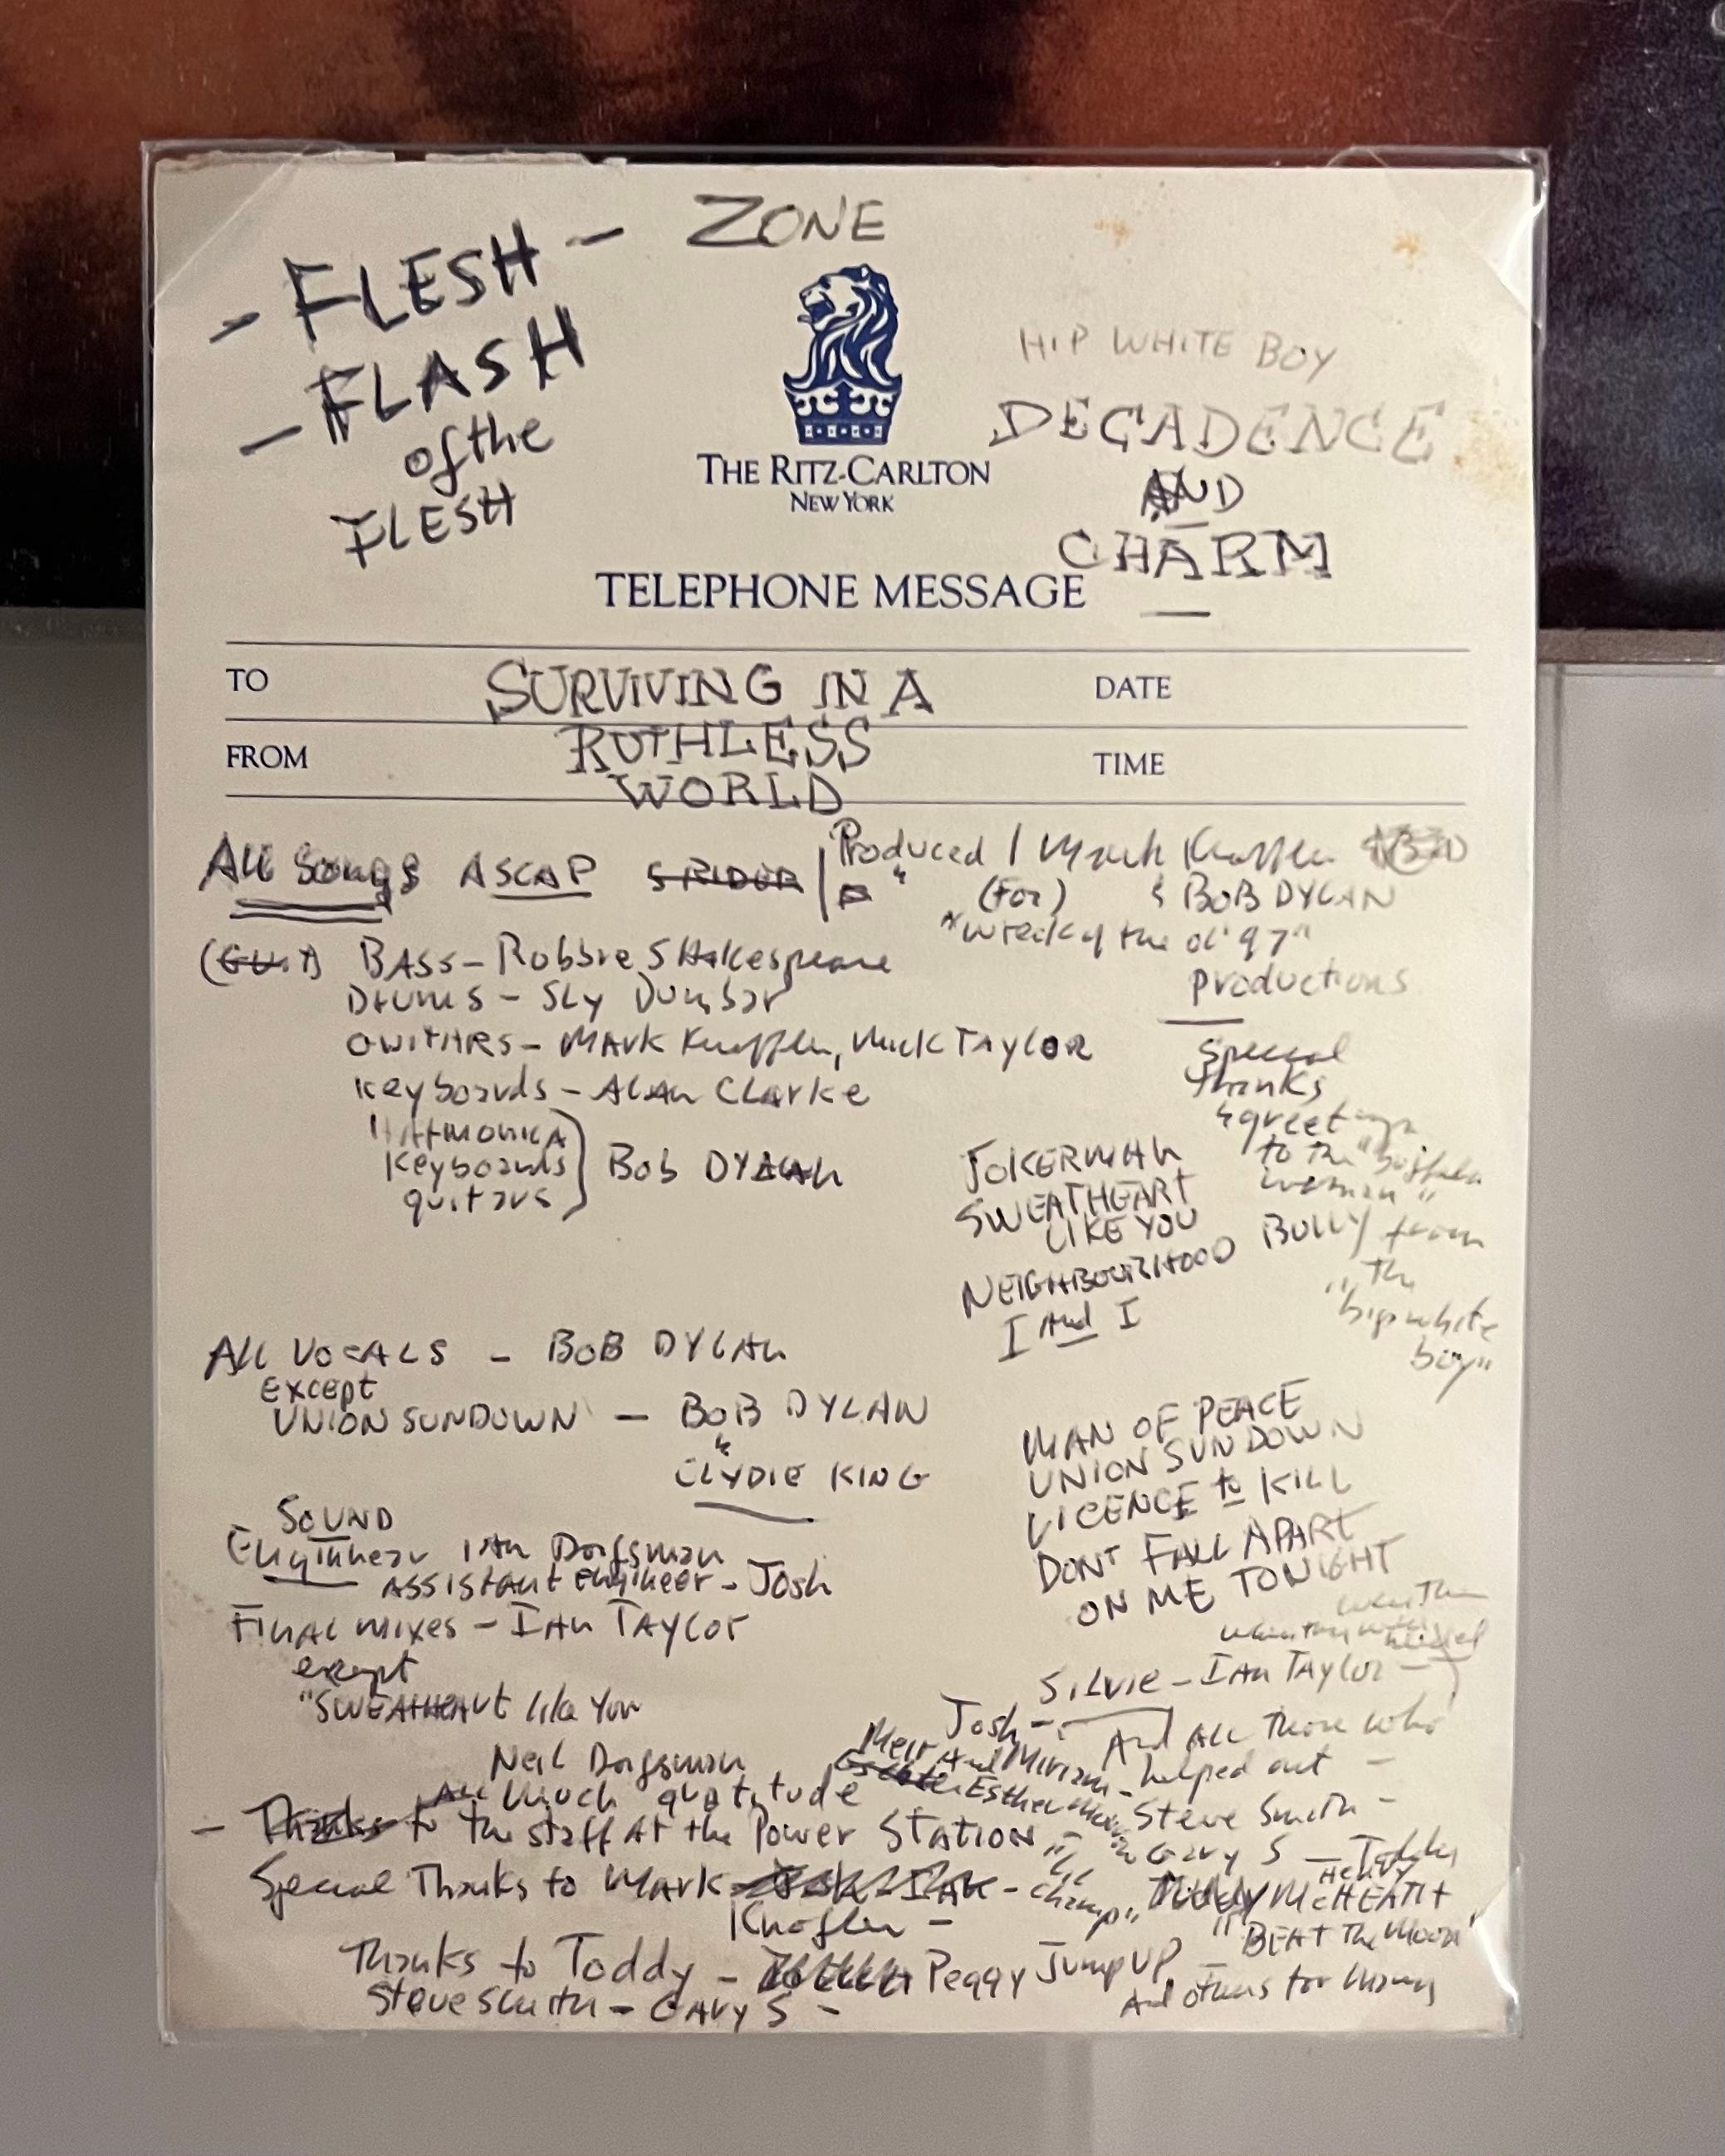 ZONE
- FLESH -
- FLASH
of the
FLESH
HIP WHITE BOY
DECADENCE
AND
CHARM
THE RITZ-CARLTON
NEW YORK
TELEPHONE MESSAGE
TO
SURVIVING IN A
DATE
FROM
RUTHLESS
WORLD
TIME
All Songs ASCAP
Produced / Mark Knopfler
(For) & BOB DYLAN
"Wreck of the ol' 97"
Productions
BASS - Robbie SHakespeare
Drums - SLY Dunbar
GUITARS - MARK Knopfler, Mick TAYLOR
Keyboards - ALAN CLARKE
HARMONICA
Keyboards
guitars
Bob DYLAN
Special
Thanks
& greetings
to the
woman"
from
"The
hip white
boy"
JOKERMAN
SWEATHEART
LIKE YOU
NEIGHBOURHOOD BULLY
I And I
ALL VOCALS - BOB DYLAN
EXCEPT
UNION SUNDOWN - BOB DYLAN
&
CLYDIE KING
MAN OF PEACE
UNION SUNDOWN
LICENCE to KILL
DONT FALL APART
ON ME TONIGHT
SOUND
Engineer IAN Dorfsman
ASSISTANT Engineer - Josh
FINAL MIXES - IAN TAYLOR
except
"SWEATHEART like You
Neil Dorfsman
SILVIE - IAN TAYLOR -
Josh -
And ALL Those who
helped out -
Meir And Miriam -
Esther
Steve Smith -
Gary S -
All Much gratitude
- Thanks to the staff AT the Power STATION
Special Thanks to Mark
Knofler -
champ"
McHEATH
"BEAT The Moon"
Thanks to Toddy - Peggy Jump UP
Steve Smith - GARY S -
And others for